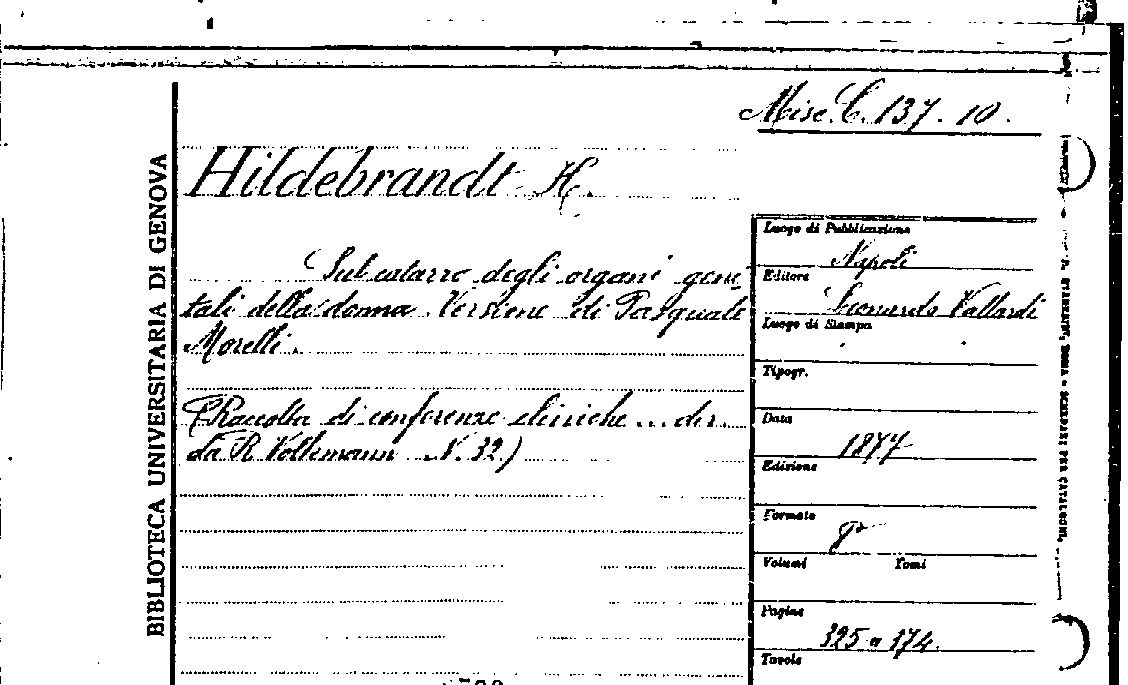 Misc. C. 137. 10.
BIBLIOTECA UNIVERSITARIA DI GENOVA
Hildebrandt H.
Sul catarro degli organi geni
tali della donna. Versione di Pasquale
Morelli.
(Raccolta di conferenze cliniche ... dir.
da R. Volkmann N. 32.)
Luogo di Pubblicazione
Napoli
Editore
Leonardo Vallardi
Luogo di Stampa
Tipogr.
Data
1877
Edizione
Formato
8°
Volumi Tomi
Pagine
a 174.
Tavole
ROMA - SCHEDARI PER CATALOGHI.